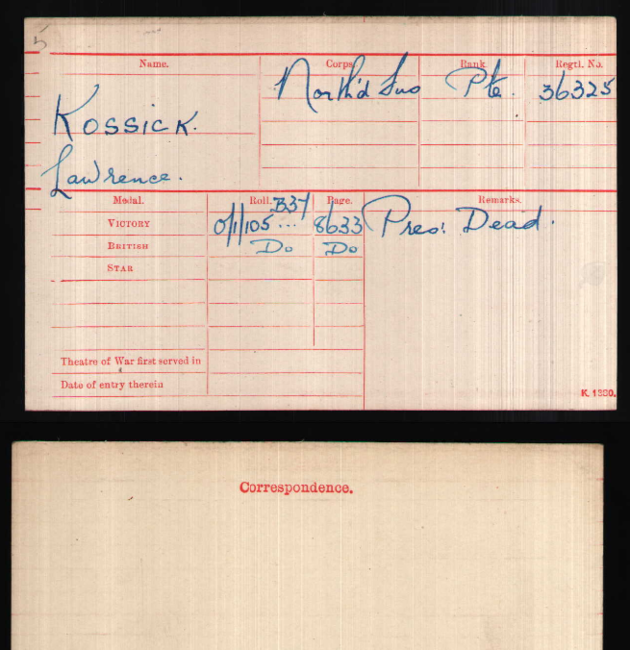 5
Name. Corps. Rank. Regtl. No.
KOSSICK. North'd Fus Pte. 36325
Lawrence.
Medal. Roll. B37 Page. Remarks.
VICTORY 0/1/105 ... 8633 Pres: Dead.
BRITISH Do Do
STAR
Theatre of War first served in
Date of entry therein
K. 1380.
Correspondence.